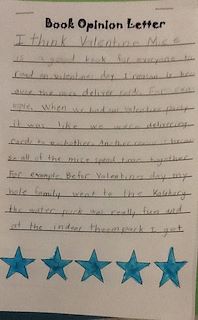 Book Opinion Letter
I think Valentine Mice
is a good book for everyone to
read on valentines day. 1 reason is bec
ause the mice deliver cards. For exa
mple, When we had our Valentine party
it was like we were delivering
cards to eachother. Another reason is becau
se all of the mice spend time together.
For example, Befor Valentines day my
hole family went to the Kalahary
the water park was really fun and
at the indoor theempark I got